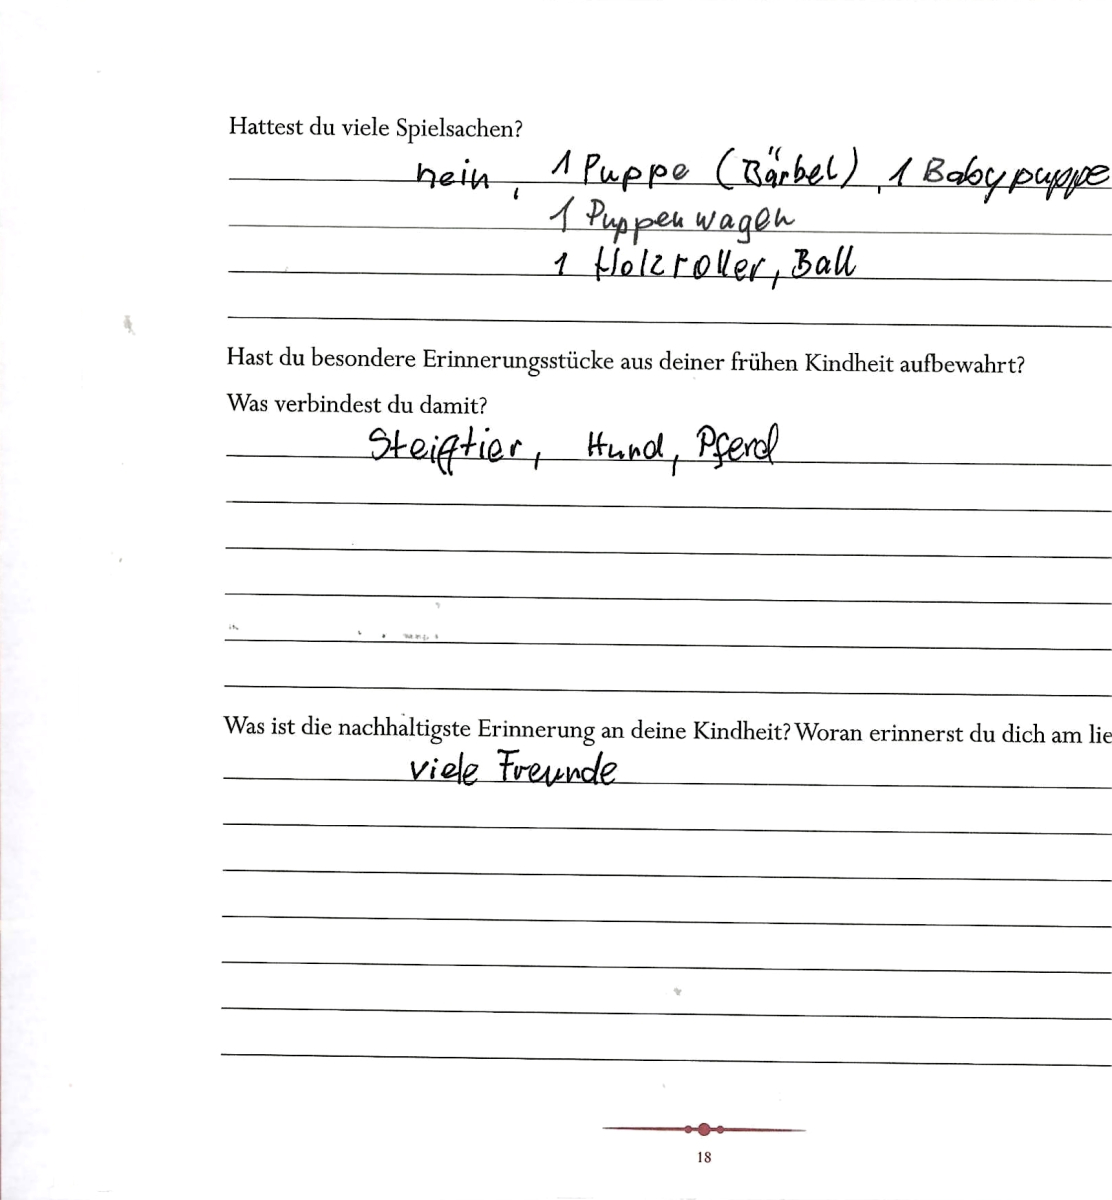 Hattest du viele Spielsachen?
nein, 1 Puppe (Bärbel), 1 Babypuppe
1 Puppenwagen
1 Holzroller, Ball
Hast du besondere Erinnerungsstücke aus deiner frühen Kindheit aufbewahrt?
Was verbindest du damit?
Steiftier, Hund, Pferd
Was ist die nachhaltigste Erinnerung an deine Kindheit? Woran erinnerst du dich am lie
viele Freunde
18